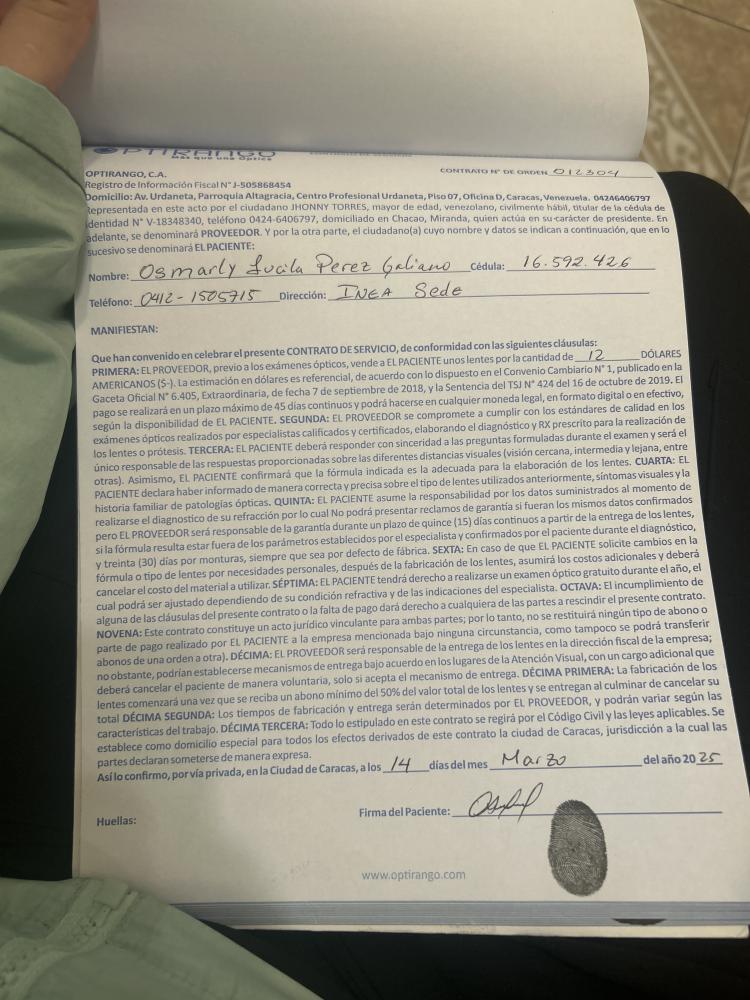 OPTIRANGO
Más que una Óptica
OPTIRANGO, C.A.
CONTRATO N° DE ORDEN 012304
Registro de Información Fiscal N° J-505868454
Domicilio: Av. Urdaneta, Parroquia Altagracia, Centro Profesional Urdaneta, Piso 07, Oficina D, Caracas, Venezuela. 04246406797
Representada en este acto por el ciudadano JHONNY TORRES, mayor de edad, venezolano, civilmente hábil, titular de la cédula de
identidad N° V-18348340, teléfono 0424-6406797, domiciliado en Chacao, Miranda, quien actúa en su carácter de presidente. En
adelante, se denominará PROVEEDOR. Y por la otra parte, el ciudadano(a) cuyo nombre y datos se indican a continuación, que en lo
sucesivo se denominará EL PACIENTE:
Nombre: Osmarly Lucila Perez Galiano Cédula: 16.592.426
Teléfono: 0412-1505715 Dirección: INEA Sede
MANIFIESTAN:
Que han convenido en celebrar el presente CONTRATO DE SERVICIO, de conformidad con las siguientes cláusulas:
PRIMERA: EL PROVEEDOR, previo a los exámenes ópticos, vende a EL PACIENTE unos lentes por la cantidad de 12 DÓLARES
AMERICANOS ($-). La estimación en dólares es referencial, de acuerdo con lo dispuesto en el Convenio Cambiario N° 1, publicado en la
Gaceta Oficial N° 6.405, Extraordinaria, de fecha 7 de septiembre de 2018, y la Sentencia del TSJ N° 424 del 16 de octubre de 2019. El
pago se realizará en un plazo máximo de 45 días continuos y podrá hacerse en cualquier moneda legal, en formato digital o en efectivo,
según la disponibilidad de EL PACIENTE. SEGUNDA: EL PROVEEDOR se compromete a cumplir con los estándares de calidad en los
exámenes ópticos realizados por especialistas calificados y certificados, elaborando el diagnóstico y RX prescrito para la realización de
los lentes o prótesis. TERCERA: EL PACIENTE deberá responder con sinceridad a las preguntas formuladas durante el examen y será el
único responsable de las respuestas proporcionadas sobre las diferentes distancias visuales (visión cercana, intermedia y lejana, entre
otras). Asimismo, EL PACIENTE confirmará que la fórmula indicada es la adecuada para la elaboración de los lentes. CUARTA: EL
PACIENTE declara haber informado de manera correcta y precisa sobre el tipo de lentes utilizados anteriormente, síntomas visuales y la
historia familiar de patologías ópticas. QUINTA: EL PACIENTE asume la responsabilidad por los datos suministrados al momento de
realizarse el diagnostico de su refracción por lo cual No podrá presentar reclamos de garantía si fueran los mismos datos confirmados
pero EL PROVEEDOR será responsable de la garantía durante un plazo de quince (15) días continuos a partir de la entrega de los lentes,
si la fórmula resulta estar fuera de los parámetros establecidos por el especialista y confirmados por el paciente durante el diagnóstico,
y treinta (30) días por monturas, siempre que sea por defecto de fábrica. SEXTA: En caso de que EL PACIENTE solicite cambios en la
fórmula o tipo de lentes por necesidades personales, después de la fabricación de los lentes, asumirá los costos adicionales y deberá
cancelar el costo del material a utilizar. SÉPTIMA: EL PACIENTE tendrá derecho a realizarse un examen óptico gratuito durante el año, el
cual podrá ser ajustado dependiendo de su condición refractiva y de las indicaciones del especialista. OCTAVA: El incumplimiento de
alguna de las cláusulas del presente contrato o la falta de pago dará derecho a cualquiera de las partes a rescindir el presente contrato.
NOVENA: Este contrato constituye un acto jurídico vinculante para ambas partes; por lo tanto, no se restituirá ningún tipo de abono o
parte de pago realizado por EL PACIENTE a la empresa mencionada bajo ninguna circunstancia, como tampoco se podrá transferir
abonos de una orden a otra). DÉCIMA: EL PROVEEDOR será responsable de la entrega de los lentes en la dirección fiscal de la empresa;
no obstante, podrían establecerse mecanismos de entrega bajo acuerdo en los lugares de la Atención Visual, con un cargo adicional que
deberá cancelar el paciente de manera voluntaria, solo si acepta el mecanismo de entrega. DÉCIMA PRIMERA: La fabricación de los
lentes comenzará una vez que se reciba un abono mínimo del 50% del valor total de los lentes y se entregan al culminar de cancelar su
total DÉCIMA SEGUNDA: Los tiempos de fabricación y entrega serán determinados por EL PROVEEDOR, y podrán variar según las
características del trabajo. DÉCIMA TERCERA: Todo lo estipulado en este contrato se regirá por el Código Civil y las leyes aplicables. Se
establece como domicilio especial para todos los efectos derivados de este contrato la ciudad de Caracas, jurisdicción a la cual las
partes declaran someterse de manera expresa.
Así lo confirmo, por vía privada, en la Ciudad de Caracas, a los 14 días del mes Marzo del año 2025
Firma del Paciente:
Huellas:
www.optirango.com